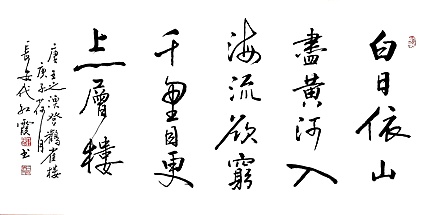 白日依山
盡黃河入
海流欲窮
千里目更
上一層樓
唐王之渙登鸛雀樓
庚子荷月
長安代紅霞书